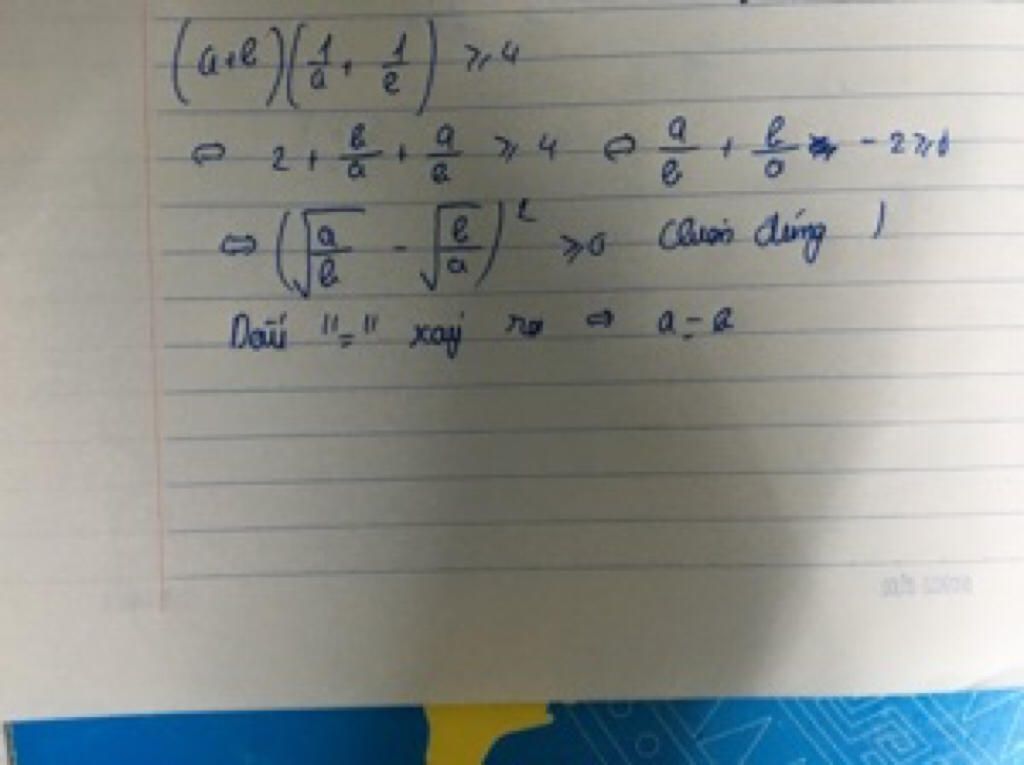 (a+b)(1/a + 1/b) ≥ 4
⇔ 2 + b/a + a/b ≥ 4 ⇔ a/b + b/a - 2 ≥ 0
⇔ (√(a/b) - √(b/a))² ≥ 0 (luôn đúng)
Dấu "=" xảy ra ⇔ a = b